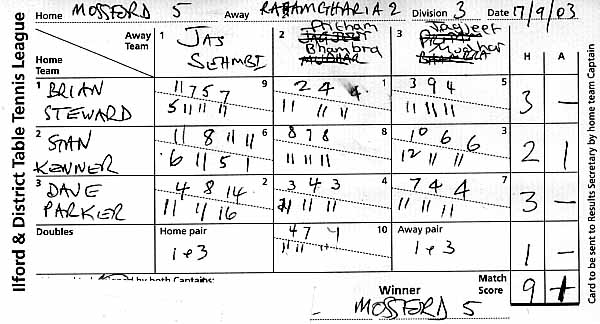 Ilford & District Table Tennis League
Home MOSFORD 5 Away RAMGHARIA 2 Division 3 Date 17/9/03
Away Team 1 JAS SEHMBI 2 Pritham Bhambra 3 Jagjeet Mudhar H A
Home Team
1 BRIAN STEWARD 9 11 7 5 7 1 2 4 4 5 3 9 4 3 –
5 11 11 11 11 11 11 11 11 11
2 STAN KENNER 6 11 8 11 11 8 8 7 8 3 10 6 6 2 1
6 11 5 1 11 11 11 12 11 11
3 DAVE PARKER 2 4 8 14 4 3 4 3 7 7 4 4 3 –
11 11 16 11 11 11 11 11 11
Doubles Home pair 1 & 3 10 4 7 4 Away pair 1 & 3 1 –
11 11 11
signed by both Captains:
Match Score 9 1
Winner MOSFORD 5
Card to be sent to Results Secretary by home team Captain